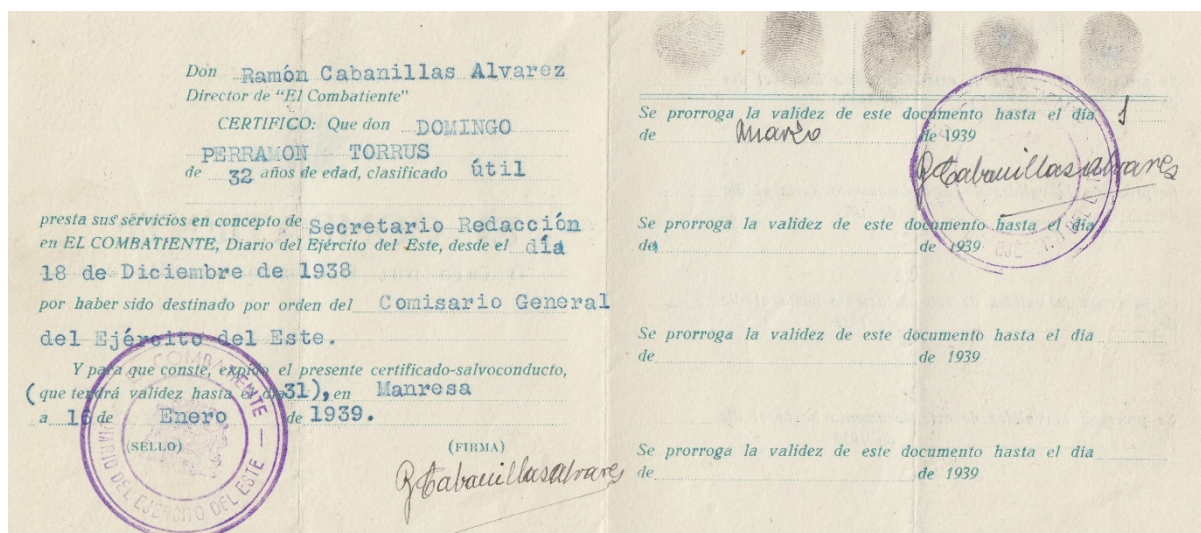 Don Ramón Cabanillas Alvarez
Director de "El Combatiente"
CERTIFICO: Que don DOMINGO
PERRAMON TORRUS
de 32 años de edad, clasificado útil
presta sus servicios en concepto de Secretario Redacción
en EL COMBATIENTE, Diario del Ejército del Este, desde el día
18 de Diciembre de 1938
por haber sido destinado por orden del Comisario General
del Ejército del Este.
Y para que conste, expido el presente certificado-salvoconducto,
(que tendrá validez hasta el día 31), en Manresa
a 16 de Enero de 1939.
(SELLO)
(FIRMA)
R Cabanillas Alvarez
COMBATIENTE
DIARIO DEL EJÉRCITO DEL ESTE
Se prorroga la validez de este documento hasta el día 1
de marzo de 1939
R Cabanillas Alvarez
Se prorroga la validez de este documento hasta el día
de de 1939
Se prorroga la validez de este documento hasta el día
de de 1939
Se prorroga la validez de este documento hasta el día
de de 1939